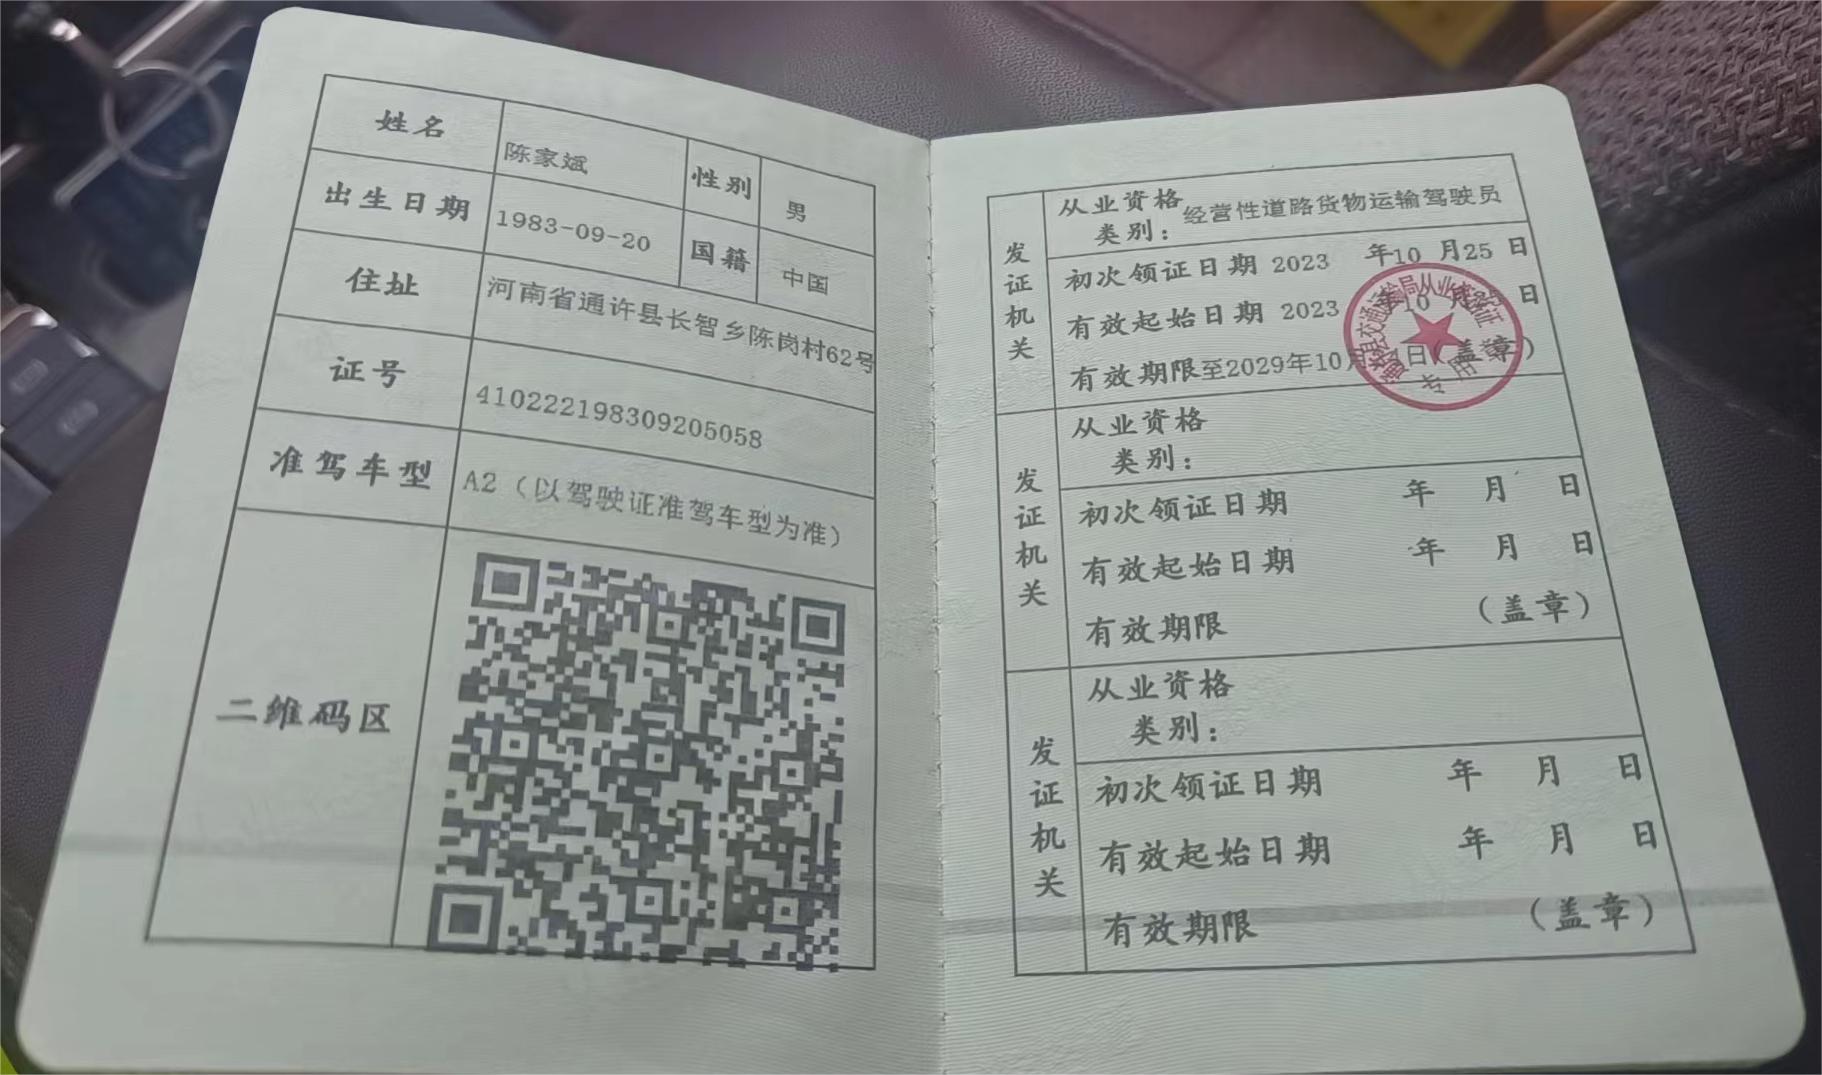 姓名 陈家斌 性别 男
出生日期 1983-09-20 国籍 中国
住址 河南省通许县长智乡陈岗村62号
证号 410222198309205058
准驾车型 A2（以驾驶证准驾车型为准）
二维码区
发证机关
从业资格类别：经营性道路货物运输驾驶员
初次领证日期 2023 年10 月25 日
有效起始日期 2023 年10 月 日
有效期限至2029年10月 日（盖章）
专用章
发证机关
从业资格
类别：
初次领证日期 年 月 日
有效起始日期 年 月 日
有效期限 （盖章）
发证机关
从业资格
类别：
初次领证日期 年 月 日
有效起始日期 年 月 日
有效期限 （盖章）